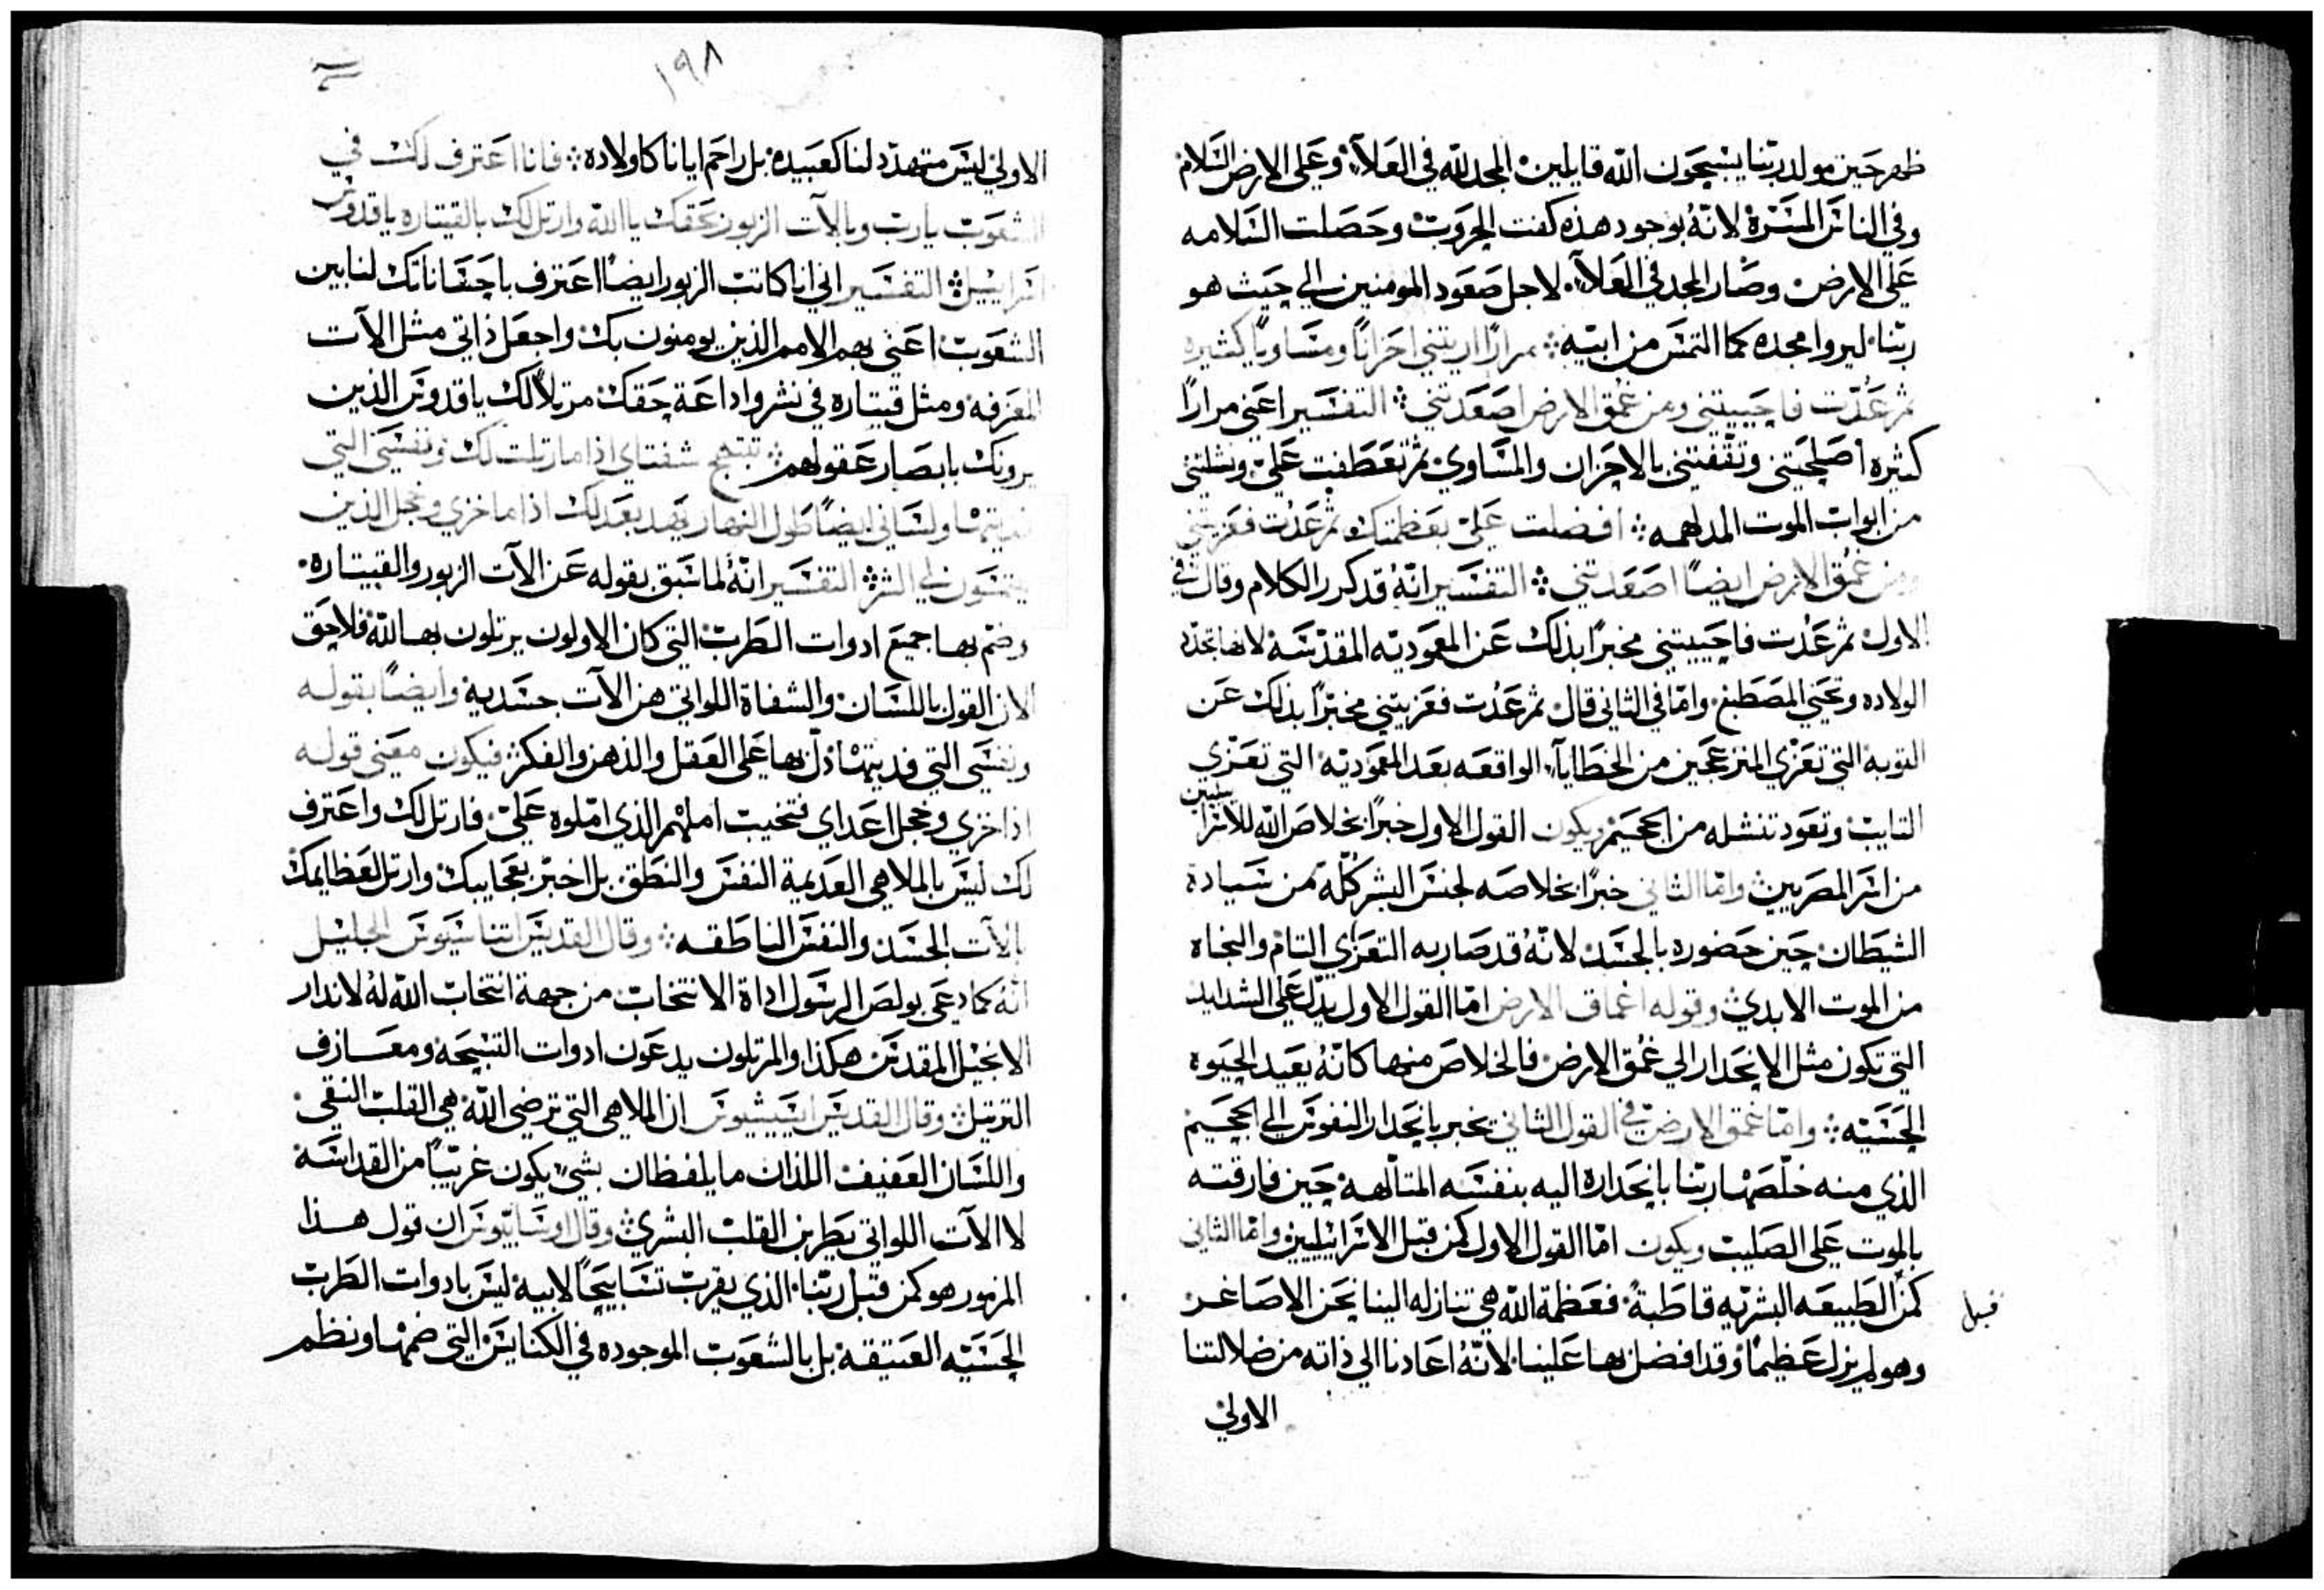 ظهر حين مولد ربّنا يسبحون الله قايلين المجد لله في العلآء وعلي الارض السّلام
وفي الناس المسّرة لانّهُ بوجود هذه كفت الحروب وحصلت السّلامه
علي الارض وصار المجد في العلآء لاجل صعود المومنين الي حيث هو
ربّنا ليروا مجده كما التمس من ابيه ܀ مرارًا اريتني احزانًا ومساويًا كثيره
ثم عُدّت فاحييتني ومن عُمق الارض اصعدتني ܀ التفسير اعني مرارًا
كثيره أصلحتني وثقّفتني بالاحزان والمسّاوي ثم تعطفت عليّ ونشلتني
من ابواب الموت المدلهمه ܀ افضلت عليّ بعظمتك ثم عُدت فعزيتني
ومن عُمق الارض ايضًا اصعدتني ܀ التفسير انّهُ قد كرر الكلام وقال في
الاول ثم عُدت فاحييتني مخبرًا بذلك عن المعموديّه المقدّسه لانها تجدّد
الولاده وتحيي المصطبغ وامّا في الثاني قال ثم عُدت فعزيتني مخبّرًا بذلك عن
التوبه التي تعزّي المنزعجين من الخطايآء الواقعه بعد المعموديّه التي تعزّي
التايب وتعود تنشله من الجحيم ويكون القول الاول خبرًا بخلاص الله للاسرا
ئيليين
من اسر المصريين وامّا الثاني خبرًا بخلاصه لجنس البشر كلّه من سيادة
الشيطان حين حضوره بالجسد لانّهُ قد صار به التعزّي التام والنجاه
من الموت الابدي وقوله اعماق الارض امّا القول الاول يدّل علي الشدايد
التي تكون مثل الانحدار الي عُمق الارض فالخلاص منها كانّهُ يعيد الحيوه
الحسّيه ܀ وامّا عُمق الارض في القول الثاني يخبر بانحدار النفوس الي الجحيم
الذي منه خلّصها ربّنا بانحداره اليه بنفسه المتألّهه حين فارقته
بالموت علي الصليب ويكون امّا القول الاول كمن قبل الاسرائيليين وامّا الثاني
كمن الطبيعه البشريّه قاطبةً فعظمة الله هي تنازله الينا نحن الاصاغر
قبل
وهو لم يزل عظيمًا وقد افضل بها علينا لانّهُ اعادنا الي ذاته من ضلالتنا
الاولي
١٩٨
الاولي ليس متهدّد لنا كعبيده بل راحم ايانا كاولاده ܀ فانا اعترف لك في
الشعوب يارب وبالآت الزبور بحقك يا الله وارتل لك بالقيتاره يا قدوس
اسرائيل ܀ التفسير اني انا كاتب الزبور ايضًا اعترف باحساناتك لنا بين
الشعوب اعني بهم الامم الذين يومنون بك واجعل ذاتي مثل الآت
المعزفه ومثل قيتاره في نشر واداعة حقك مرتلاً لك يا قدوس الذين
يرونك بابصار عقولهم ܀ تبتهج شفتاي اذا ما رتلت لك ونفسي التي
فديتها ولساني ايضًا طول النهار يهد بعدلك اذا ما خزي وخجل الذين
يلتمسون لي الشرّ ܀ التفسير انّهُ لما سبق بقوله عن الآت الزبور والقيتاره
وضم بها جميع ادوات الطرب التي كان الاولون يرتلون بها لله فلاحق
الان القول باللسان والشفاة اللواتي هن الآت جسدية وايضًا بقوله
ونفسي التي فديتها دلّ بها علي العقل والذهن والفكر فيكون معني قوله
اذا خزي وخجل اعداي فتخيب املهم الذي امّلوه عليّ فارتل لك واعترف
لك ليس بالملاهي العديمة النفس والنطق بل اخبر بعجايبك وارتل لعظايمك
بالآت الجسد والنفس الناطقه ܀ وقال القديس اتناسيوس الجليل
انّهُ كما دعي بولص الرسول اداة الانتخاب من جهة انتخاب الله لهُ لاندار
الانجيل المقدس هكذا والمرتلون يدعون ادوات التسبحه ومعازف
الترتيل ܀ وقال القديس ايسيشيوس ان الملاهي التي ترضي الله هي القلب النقي
واللسان العفيف اللذان ما يلفظان بشيء يكون غريبًا من القداسه
لا الآت اللواتي يطربن القلب البشري ܀ وقال اوسابيوس ان قول هذا
المزمور هو كمن قبل ربّنا الذي يقرب تسابيحًا لابيه ليس بادوات الطرب
الحسّيه العتيقه بل بالشعوب الموجوده في الكنايس التي ضمها ونظم